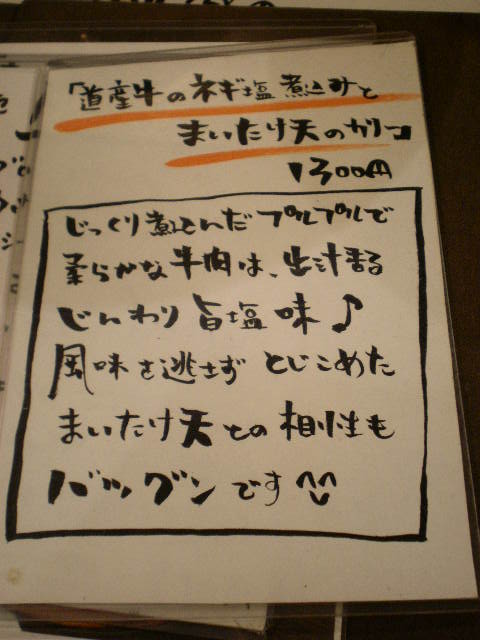 「道産牛のネギ塩煮込みと
まいたけ天のカリー」
1300円
じっくり煮込んだプルプルで
柔らかな牛肉は、出汁香る
じんわり旨塩味♪
風味を逃さずとじこめた
まいたけ天との相性も
バツグンです^^